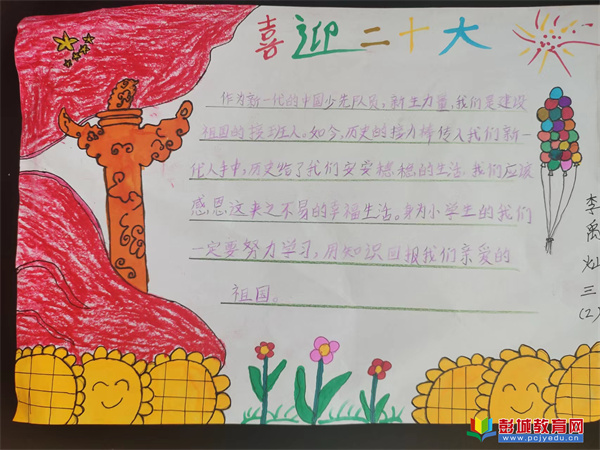 喜迎二十大
作为新一代的中国少先队员，新生力量，我们是建设
祖国的接班人。如今，历史的接力棒传入我们新一
代人手中，历史给了我们安安稳稳的生活，我们应该
感恩这来之不易的幸福生活。身为小学生的我们
一定要努力学习，用知识回报我们亲爱的
祖国。
李禹灿
三(2)
彭城教育网
www.pcjyedu.cn